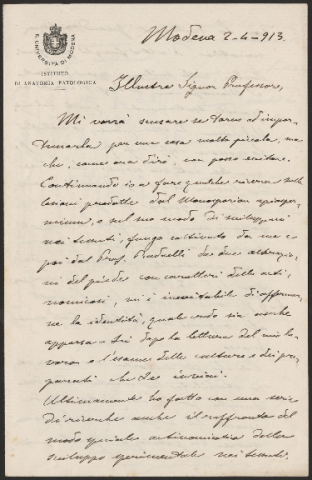 R. UNIVERSITÀ DI MODENA
ISTITUTO
DI ANATOMIA PATOLOGICA
Modena 2-4-913.
Illustre Signor Professore,
Mi vorrà scusare se torno ad impor-
tunarla per una cosa molto piccola, ma
che, come ora dirò, non posso evitare.
Continuando io a fare qualche ricerca sulle
lesioni prodotte dal
e sul suo modo di sviluppari
nei tessuti, fungo coltivato da me e
poi dal Prof. Radaelli da due
ni del piede con caratteri delle acti-
nomicosi, mi è inevitabile di affermar-
ne la identità, quale credo sia anche
apparsa a Lei dopo la lettura del mio la-
voro e l'esame delle culture e dei pre-
parati che Le inviai.
Ultimamente ho fatto con una serie
di ricerche anche il raffronto del
modo speciale actinomicotico dello
sviluppo sperimentale nei tessuti.